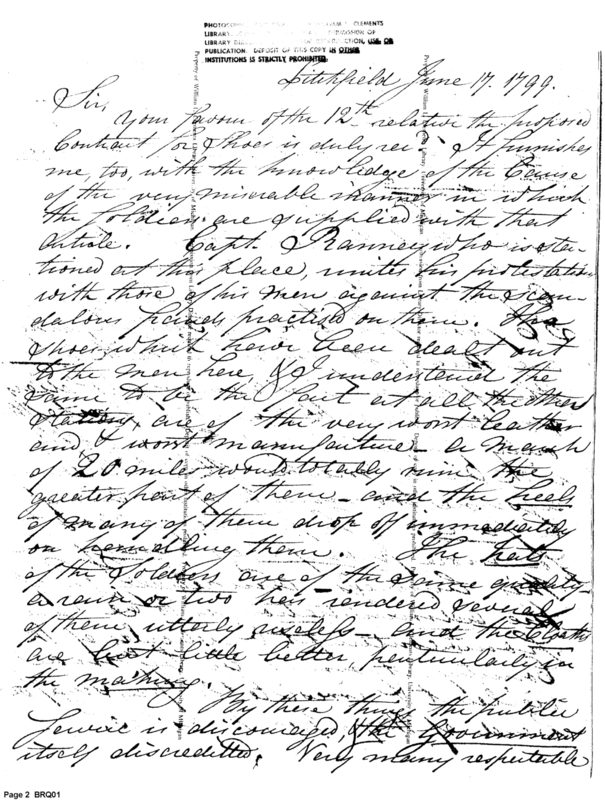 LIBRARY
PUBLICATION. DEPOSIT OF THIS COPY IN OTHER
INSTITUTIONS IS STRICTLY PROHIBITED.
Litchfield June 17. 1799.
Sir,
Your favour of the 12th relative the proposed
Contract for Shoes is duly rec. It furnishes
me, too, with the knowledge of the Cause
of the very miserable manner in which
the Soldiers are supplied with that
article. Capt. Ranney, who is sta-
tioned at this place, unites his protestation
with those of his men against the scan-
dalous frauds practised on them. The
shoes, which have been dealt out
to the men here & I understand the
same to be the fact at all the other
stations, are of the very worst leather
and, & worst manufacture. a march
of 20 miles would totally ruin the
greater part of them - and the heels
of many of them drop off immediately
on handling them. The hats
of the Soldiers are of the same quality.
a rain or two has rendered several
of them utterly useless - and the Cloaths
are but little better, particularly in
the making.
By these things the public
Service is discouraged, & the Government
itself discredited. Very many respectable
Page 2 BRQ01